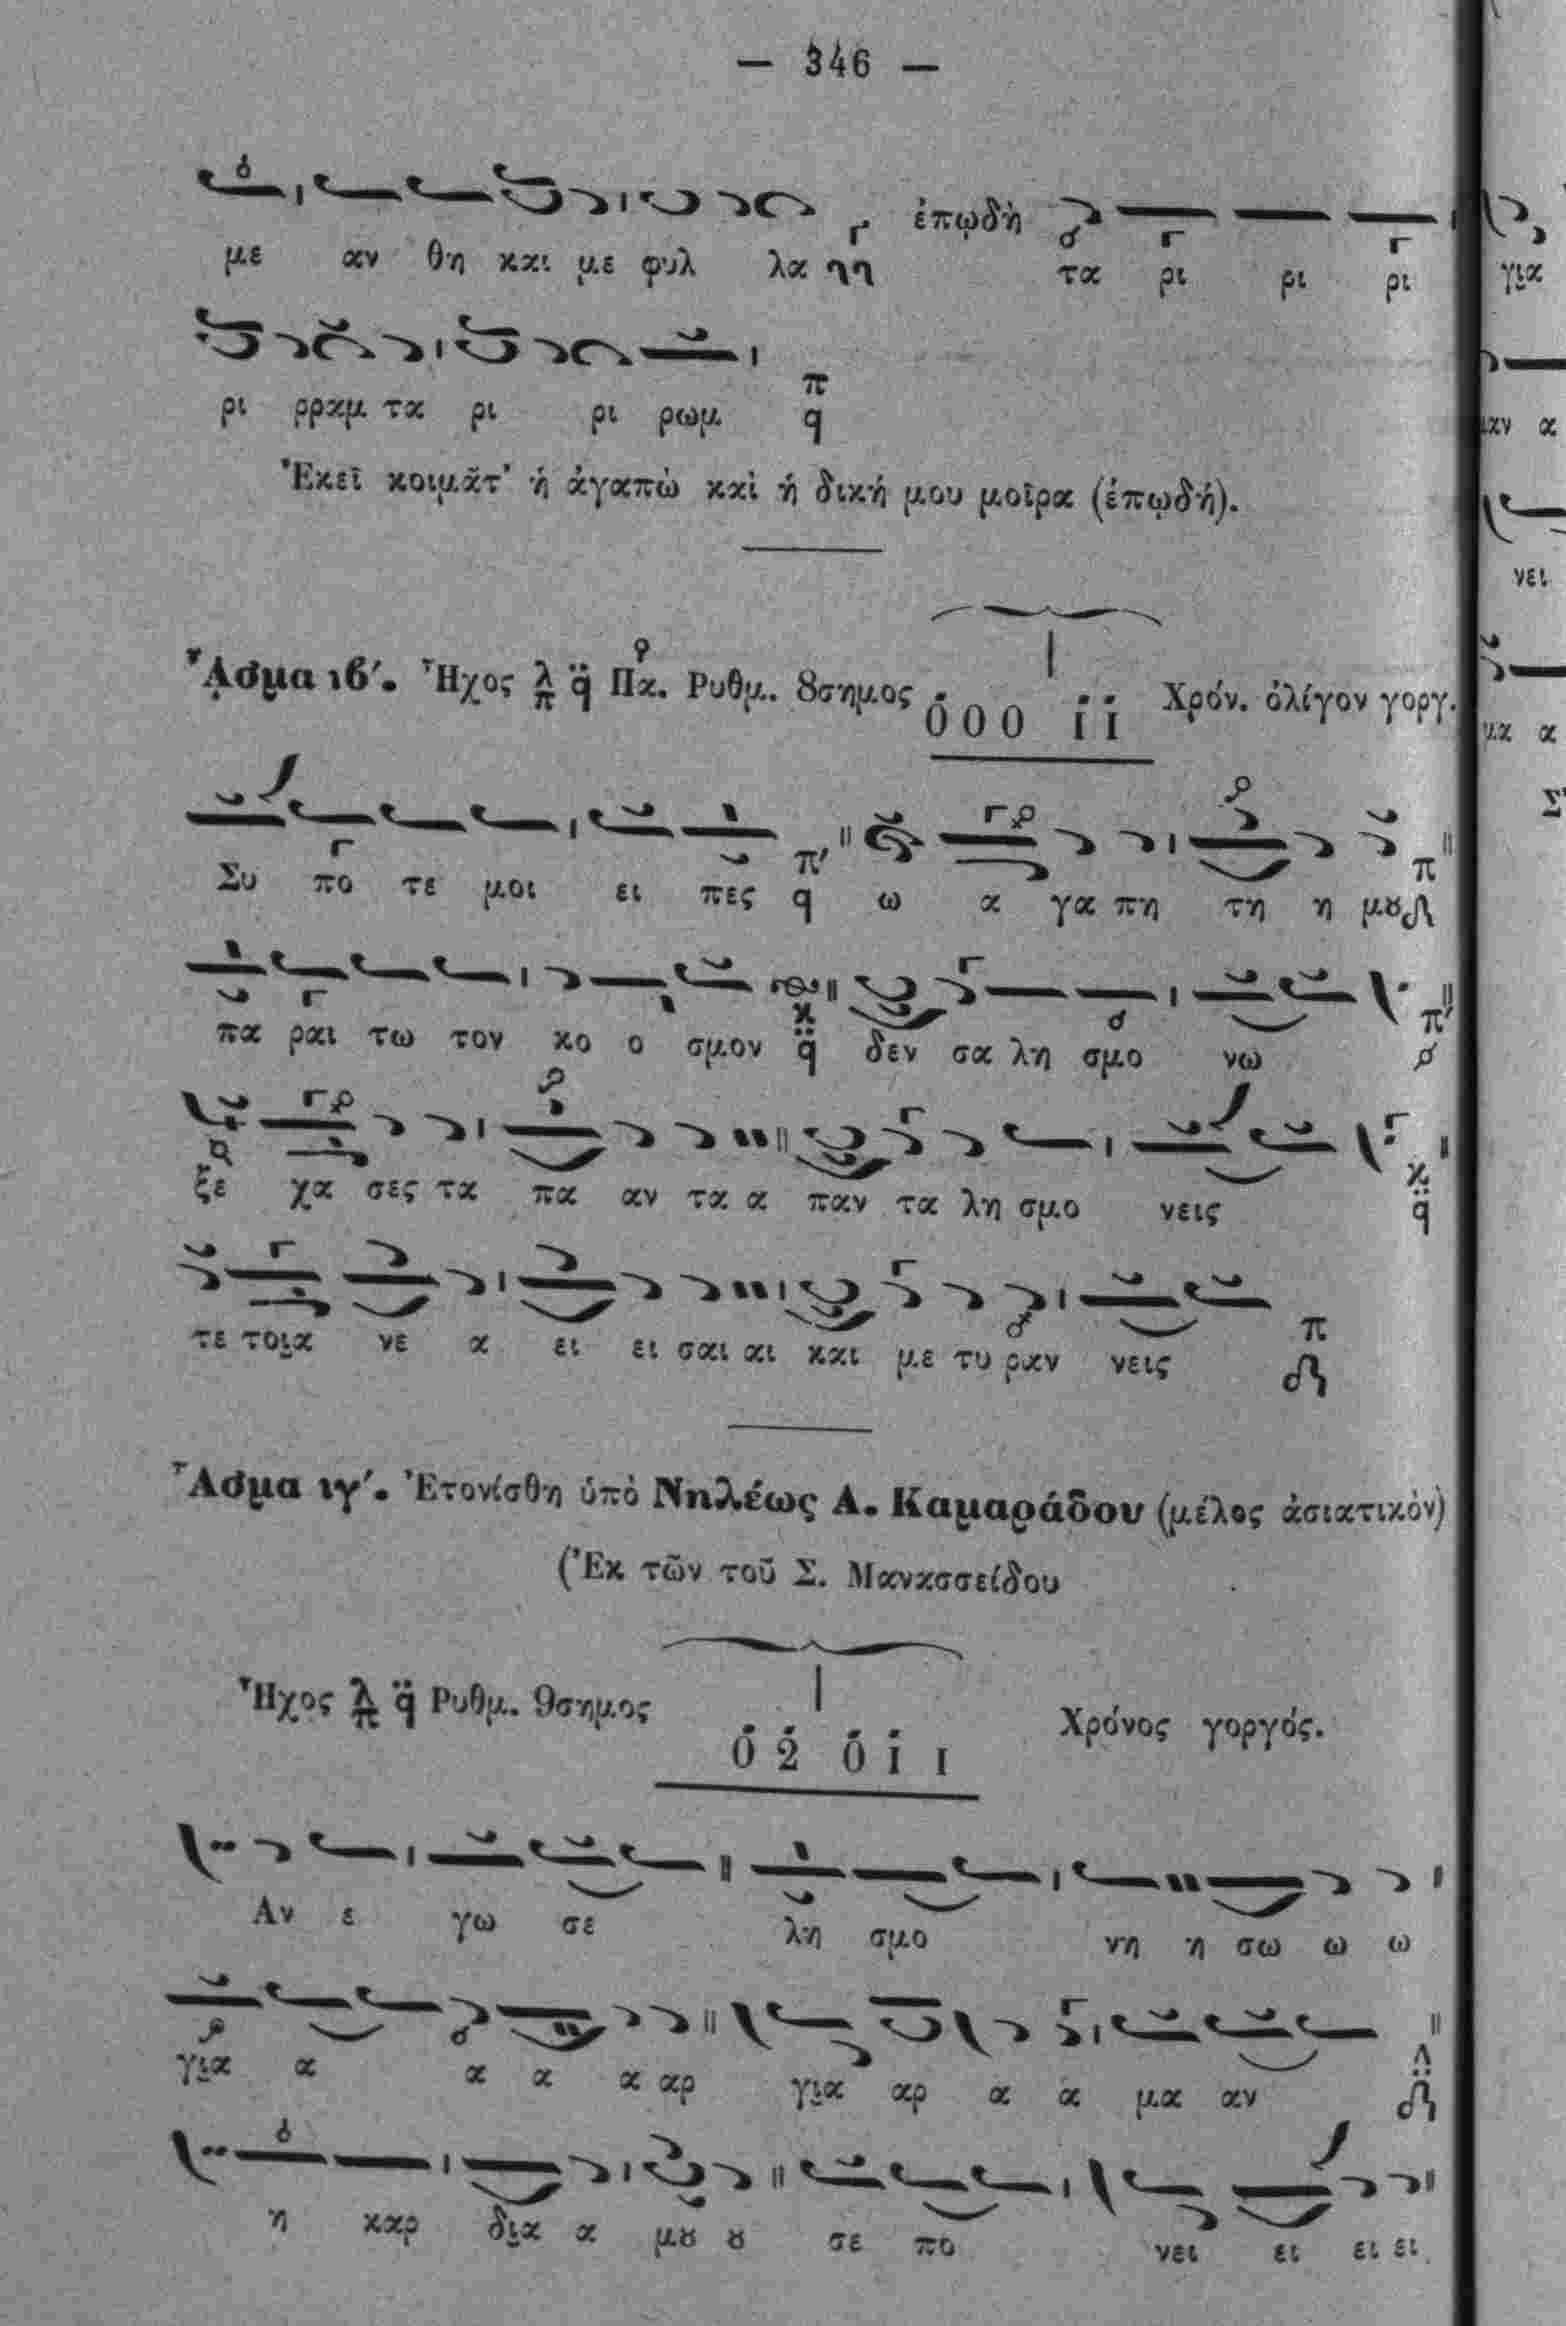 — 346 —
με αν θη και με φυλ λα ἐπῳδὴ τα ρι ρι ρι
ρι ρραμ τα ρι ρι ρωμ
Ἐκεῖ κοιμᾶτ' ἡ ἀγαπῶ καὶ ἡ δική μου μοῖρα (ἐπῳδή).
ᾎσμα ιβ΄. Ἦχος λ π q̈ Πα. Ρυθμ. 8σημος 0 0 0 I I Χρόν. ὀλίγον γοργ.
Συ πο τε μοι ει πες π΄ q ω α γα πη τη η μȣ π
πα ραι τω τον κο ο σμον κ q̈ δεν σα λη σμο νω π΄
ξε χα σες τα πα αν τα α παν τα λη σμο νεις κ q̈
τε τοι̯α νε α ει ει σαι αι και με τυ ραν νεις π
ᾎσμα ιγ΄. Ἐτονίσθη ὑπὸ Νηλέως Α. Καμαράδου (μέλος ἀσιατικὸν)
(Ἐκ τῶν τοῦ Σ. Μανασσείδου
Ἦχος λ π q̈ Ρυθμ. 9σημος 0 2 0 I I Χρόνος γοργός.
Αν ε γω σε λη σμο νη η σω ω ω
γι̯α α α α α αρ γι̯α αρ α α μα αν
η καρ δι̯α α μȣ ȣ σε πο νει ει ει ει
γι̯α
νει
μα α